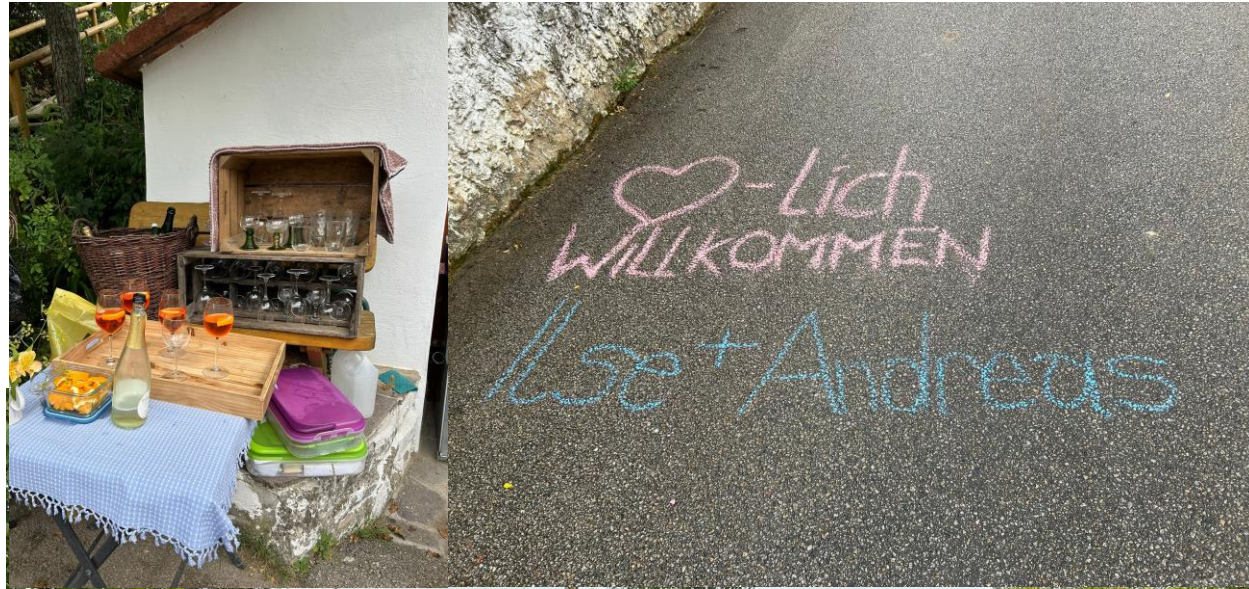 ♡-lich
WILLKOMMEN
Ilse + Andreas